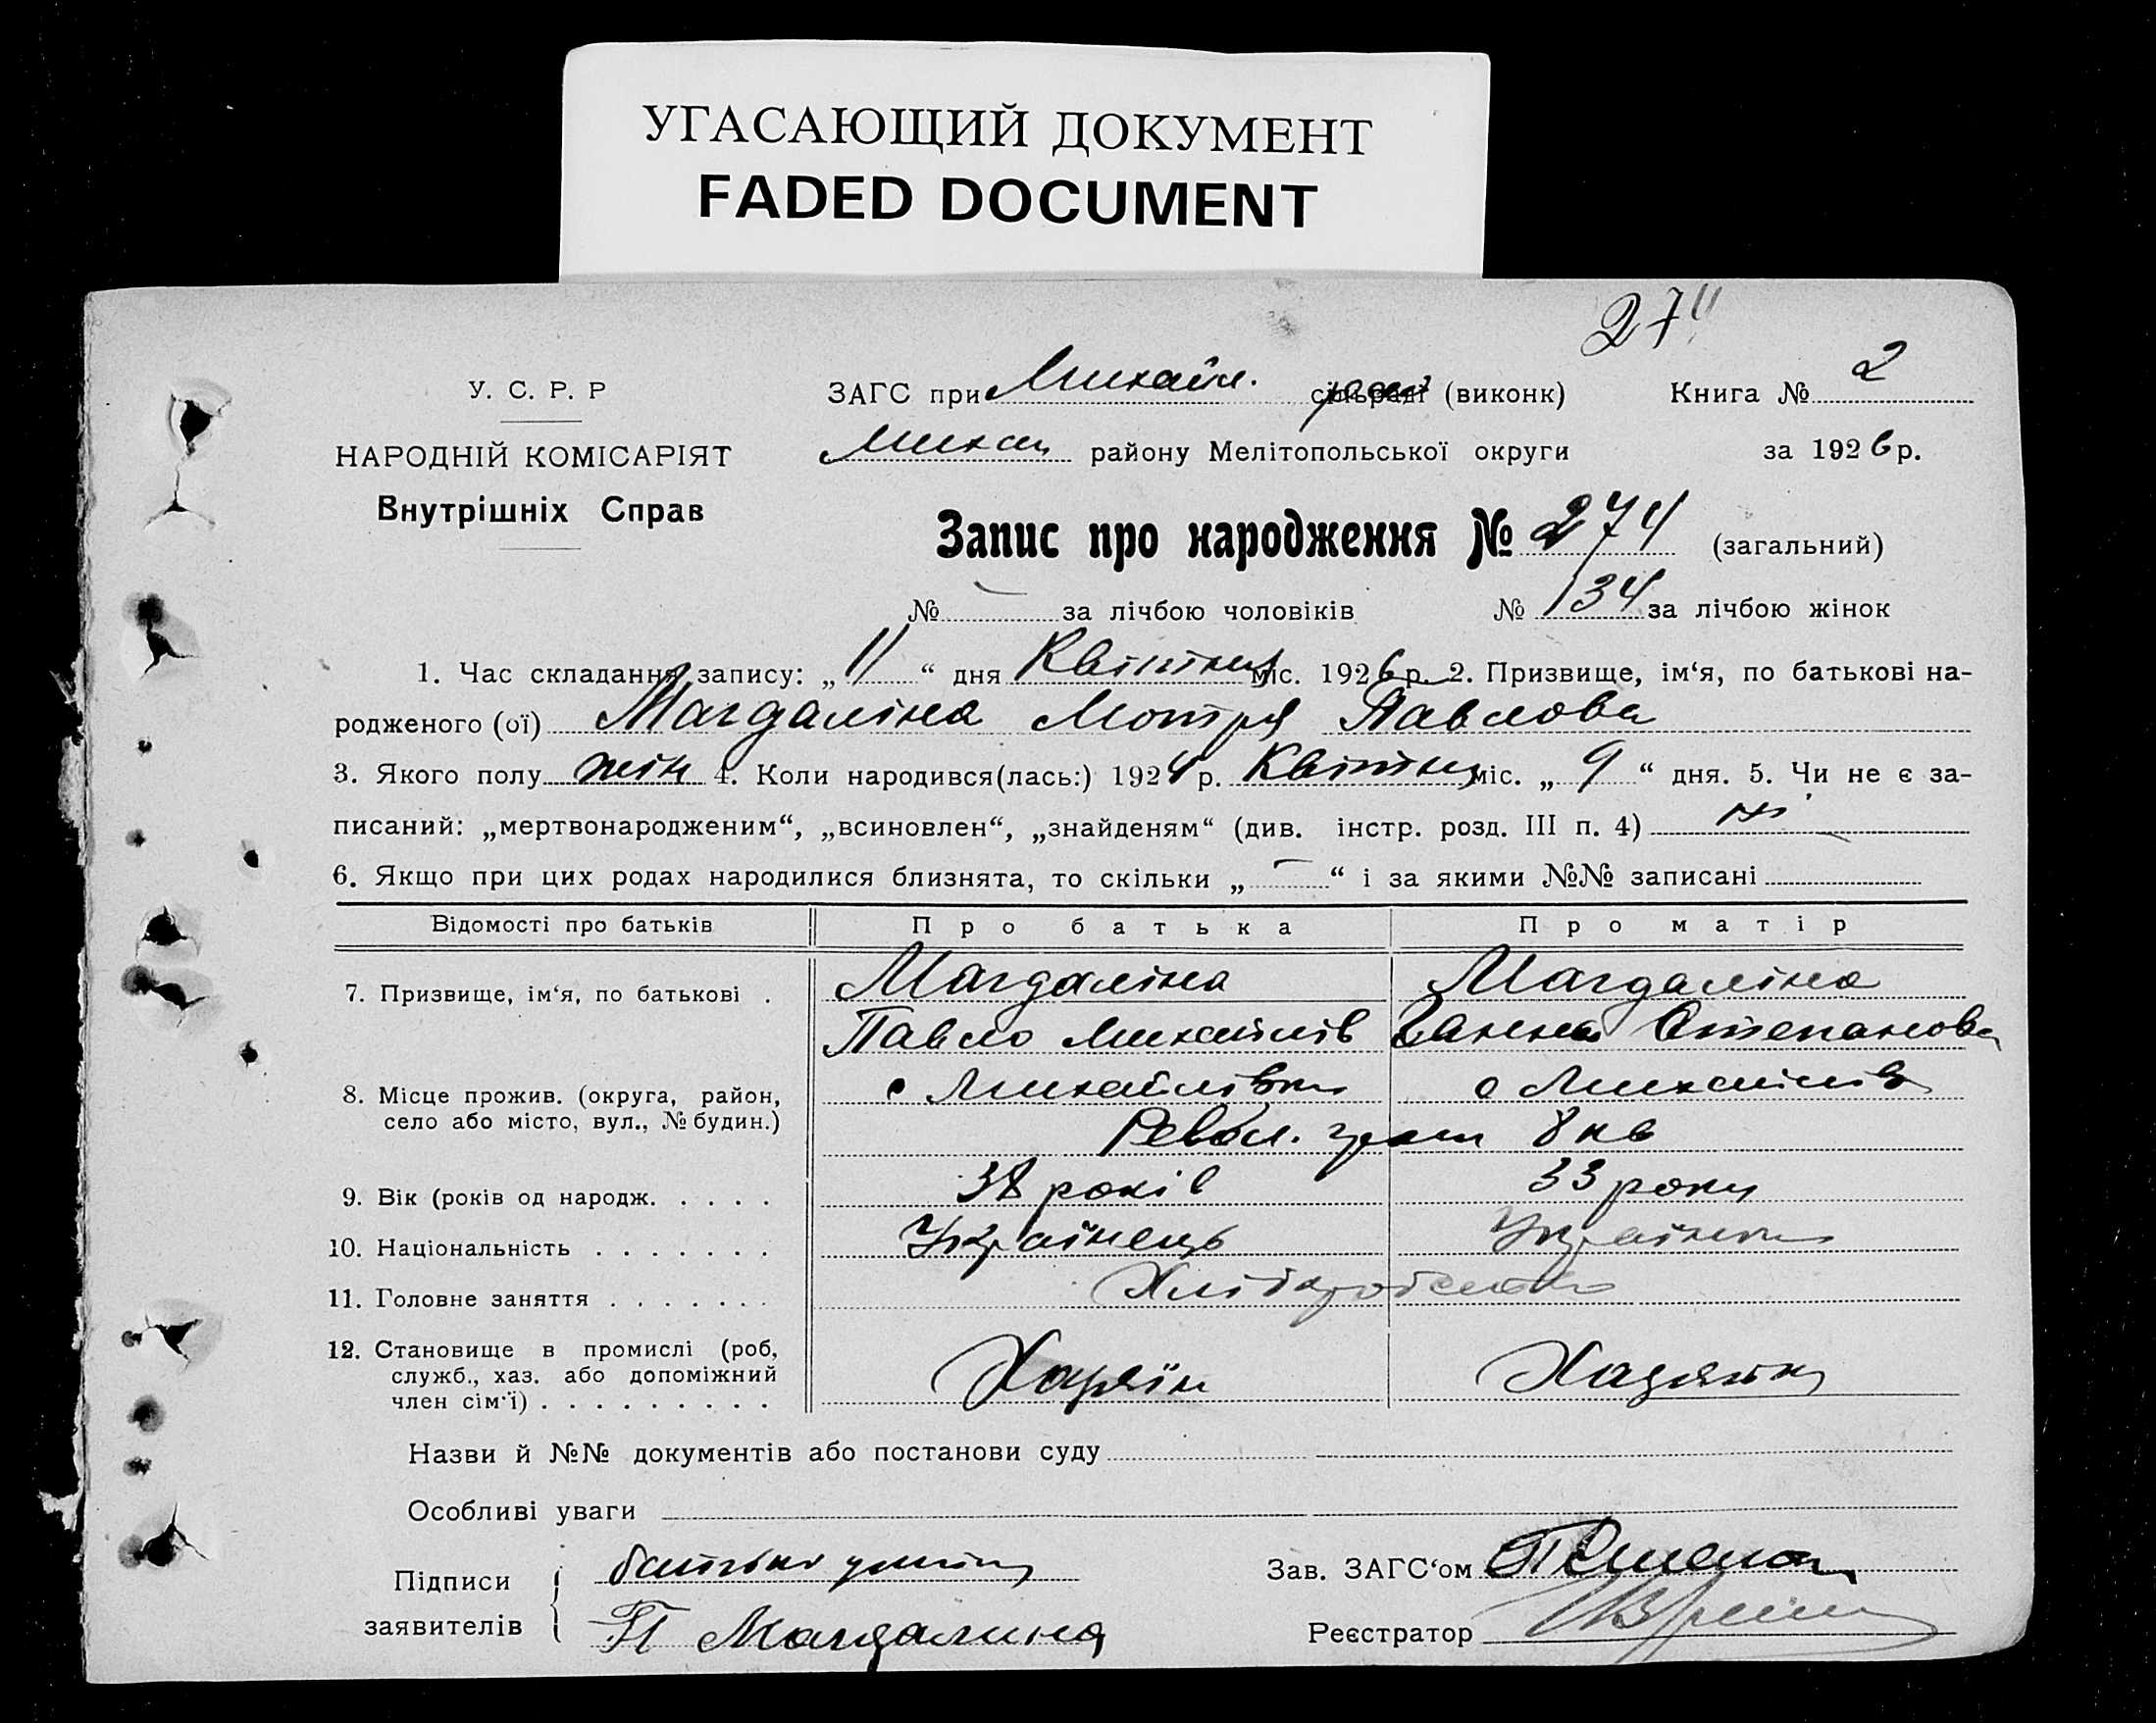 УГАСАЮЩИЙ ДОКУМЕНТ
FADED DOCUMENT
274
У. С. Р. Р
ЗАГС при Михайл. сільраді (виконк) Книга № 2
НАРОДНІЙ КОМІСАРІЯТ
Михай району Мелітопольської округи за 1926 р.
Внутрішніх Справ
Запис про народження № 274 (загальний)
№ — за лічбою чоловіків № 134 за лічбою жінок
1. Час складання запису: „11“ дня Квітня міс. 1926 р. 2. Призвище, ім‘я, по батькові на-
родженого (ої) Магдаліна Мотря Павлова
3. Якого полу жін 4. Коли народився(лась:) 1924 р. Квітня міс. „9“ дня. 5. Чи не є за-
писаний: „мертвонародженим“, „всиновлен“, „знайденям“ (див. інстр. розд. III п. 4) ні
6. Якщо при цих родах народилися близнята, то скільки „—“ і за якими №№ записані
Відомості про батьків Про батька Про матір
7. Призвище, ім‘я, по батькові . Магдаліна Магдаліна
Павло Михайлів Ганна Степанова
8. Місце прожив. (округа, район, с Михайлівка с Михайлів
село або місто, вул., № будин.) Револ. 8 кв
9. Вік (років од народж. . . . . 38 років 33 роки
10. Національність . . . . . . . Українець Українка
11. Головне заняття . . . . . . . Хліборобство
12. Становище в промислі (роб,
служб., хаз. або допоміжний Хазяїн Хазяйка
член сім‘ї) . . . . . . . . .
Назви й №№ документів або постанови суду
Особливі уваги
Підписи батько Зав. ЗАГС‘ом
заявителів П Магдалина Реєстратор